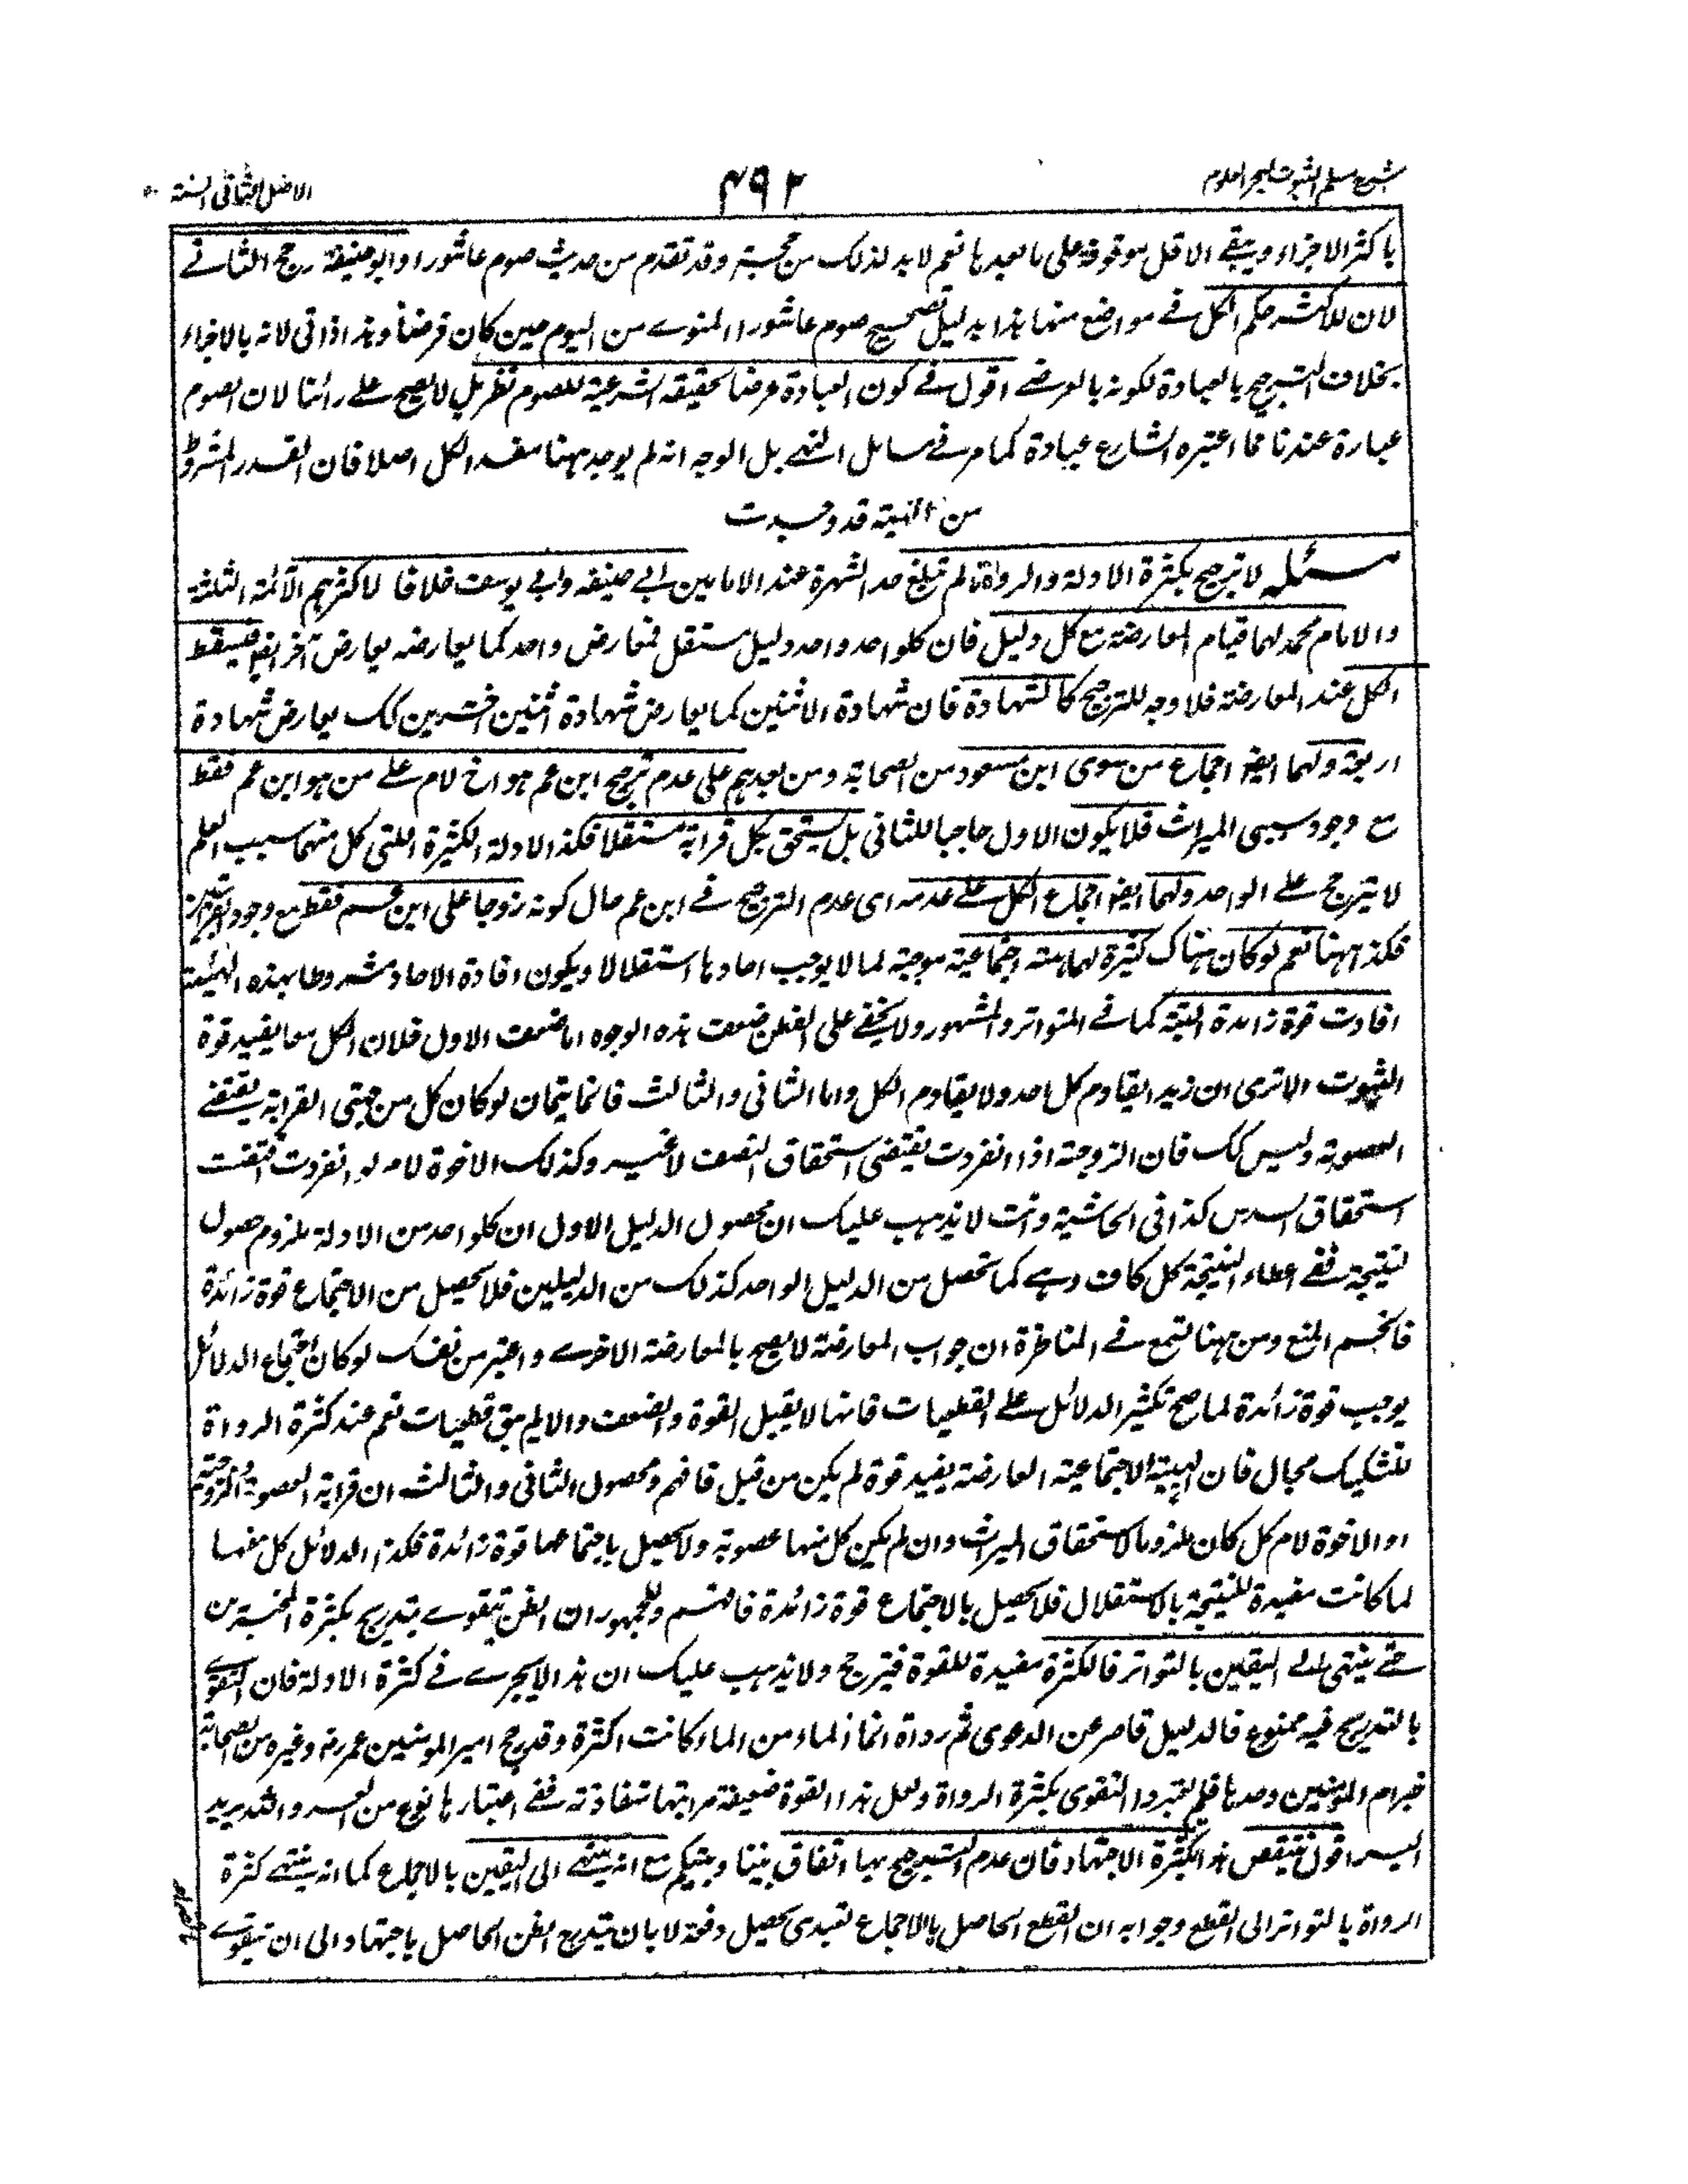 شرح مسلم الثبوت لبحر العلوم
۴۹۲
الاصل الثانی السنة
باکثر الاجزاء ویبقے الاقل موقوفة علی ما بعدہا نعم لا بد لذلک من حجة وقد تقدم من حدیث صوم عاشوراء وابو حنیفة رجح الثانے
لان للاکثر حکم الکل فے مواضع منہا ہذا بدلیل تصحیح صوم عاشوراء المنوے من الیوم حین کان فرضا وہذا ذاتی لانہ بالاجزاء
بخلاف الترجیح بالعبادة لکونہ بالعرضے اقول فے کون العبادة عرضا لحقیقة الشرعیة للصوم نظر بل لا یصح علے رائنا لان الصوم
عبارة عندنا عما اعتبرہ الشارع عبادة کما مر فے مسائل النہے بل الوجہ انہ لم یوجد ہہنا مفسد الکل اصلا فان القدر المشروط
من النیة قد وجدت
مسئلہ لا ترجیح بکثرة الادلة والرواة ما لم تبلغ حد الشہرة عند الامامین ابی حنیفة وابی یوسف خلافا لاکثرہم الائمة الثلثة
والامام محمد لہما قیام المعارضة مع کل دلیل فان کلواحد واحد دلیل مستقل فمعارض واحد کما یعارضہ یعارض آخر ایضا فیسقط
الکل عند المعارضة فلا وجہ للترجیح کالشہادة فان شہادة الاثنین کما یعارض شہادة اثنین اخرین کک یعارض شہادة
اربعة ولہما ایضا اجماع من سوی ابن مسعود من الصحابة ومن بعدہم علی عدم ترجیح ابن عم ہو اخ لام علے من ہو ابن عم فقط
مع وجود سببی المیراث فلا یکون الاول حاجبا للثانی بل یستحق بکل قرابة مستقلا فکذا الادلة الکثیرة اللتی کل منہا سبب العلم
لا یترجح علے الواحد ولہما ایضا اجماع الکل علے عدمہ ای عدم الترجیح فے ابن عم حال کونہ زوجا علی ابن عم فقط مع وجود
فکذا ہہنا نعم لو کان ہناک کثیرة لہا ہیئة اجتماعیة موجبة لما لا یوجب احادہا استقلالا ویکون افادة الاحاد مشروطا بہذہ الہیئة
افادت قوة زائدة البتة کما فے المتواتر والمشہور ولا یخفے علی الفطن ضعف ہذہ الوجوہ اما ضعف الاول فلان الکل معا یفید قوة
الثبوت الا تری ان زیدا یقاوم کل احد ولا یقاوم الکل واما الثانی والثالث فانما یتمان لو کان کل من جہتی القرابة یقتضے
العصوبة ولیس کک فان الزوجة اذا انفردت یقتضی استحقاق النصف لا غیر وکذلک الاخوة لام لو انفردت اقتضت
استحقاق السدس کذا فی الحاشیة وانت لا یذہب علیک ان محصول الدلیل الاول ان کلواحد من الادلة ملزوم حصول
نتیجة ففے اعطاء النتیجة کل کاف وہے کما تحصل من الدلیل الواحد کذلک من الدلیلین فلا یحصل من الاجتماع قوة زائدة
فانحسم المنع ومن ہہنا تسمع فے المناظرة ان جواب المعارضة لا یصح بالمعارضة الاخرے واعتبر من نفسک لو کان اجتماع الدلائل
یوجب قوة زائدة لما صح تکثیر الدلائل علے القطعیات فانہا لا یقبل القوة والضعف والا لم یبق قطعیات نعم عند کثرة الرواة
للتشکیک مجال فان الہیئة الاجتماعیة العارضة یفید قوة لم یکن من قبل فافہم ومحصول الثانی والثالث ان قرابة العصوبة والزوجیة
او الاخوة لام کل کان ملزوما لاستحقاق المیراث وان لم یکن کل منہا عصوبة ولا یحصل باجتماعہا قوة زائدة فکذا الدلائل کل منہا
لما کانت مفیدة للنتیجة بالاستقلال فلا یحصل بالاجتماع قوة زائدة فافہم وللجمہور ان الظن یتقوے بتدریج بکثرة المخبرین
حتے ینتہی الے الیقین بالتواتر فالکثرة مفیدة للقوة فیترجح ولا یذہب علیک ان ہذا لا یجرے فے کثرة الادلة فان التقوے
بالتدریج فیہ ممنوع فالدلیل قاصر عن الدعوی ثم رواة انما الماء من الماء کانت اکثرة وقد رجح امیر المومنین عمر رضہ وغیرہ من الصحابة
خبر ام المومنین وحدہا فلم یعتبروا التقوی بکثرة الرواة ولعل ہذا القوة ضعیفة مراتبہا متفاوتة ففے اعتبارہا نوع من العسر واللہ یرید
الیسر اقول ینتقض ہذا بکثرة الاجتہاد فان عدم الترجیح بہا اتفاق بیننا وبینکم مع انہ ینتہے الی الیقین بالاجماع کما انہ ینتہے کثرة
الرواة بالتواتر الی القطع وجوابہ ان القطع الحاصل بالاجماع تعبدی یحصل دفعة لا بان یتدرج الظن الحاصل باجتہاد الی ان یتقوے